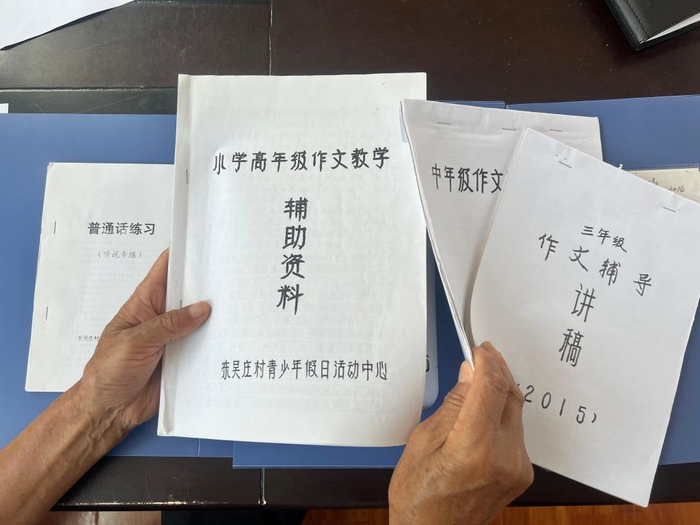 普通话练习
(听说辛练)
小学高年级作文教学
辅助资料
东吴庄村青少年假日活动中心
中年级作文
三年级
作文辅导
讲稿
(2015)
2014